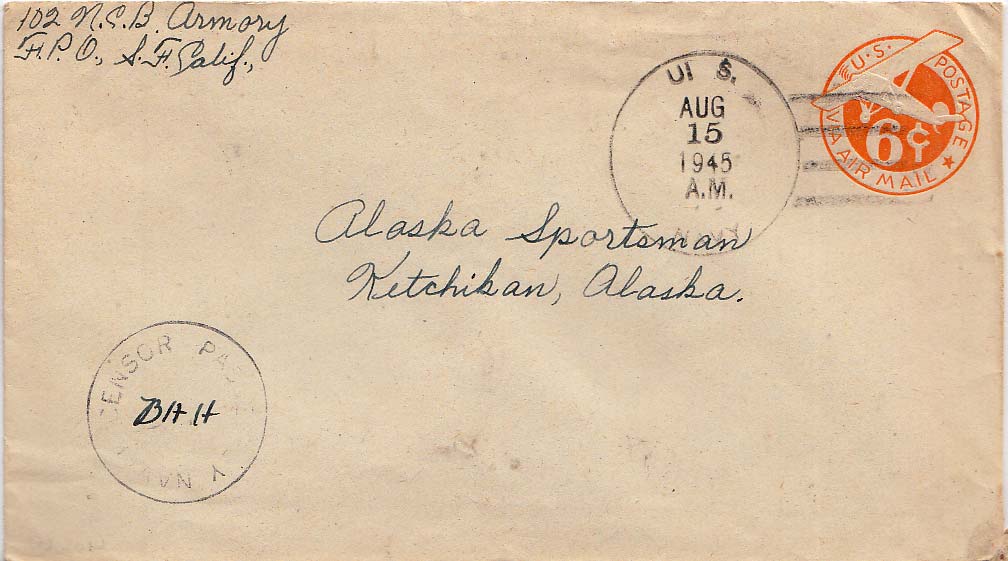 102 N.C.B. Armory
F.P.O., S.F. Calif.,
U. S.
AUG
15
1945
A.M.
NAVY
U.S. POSTAGE
6¢
VIA AIR MAIL
Alaska Sportsman
Ketchikan, Alaska.
CENSOR
BHH
NAVY